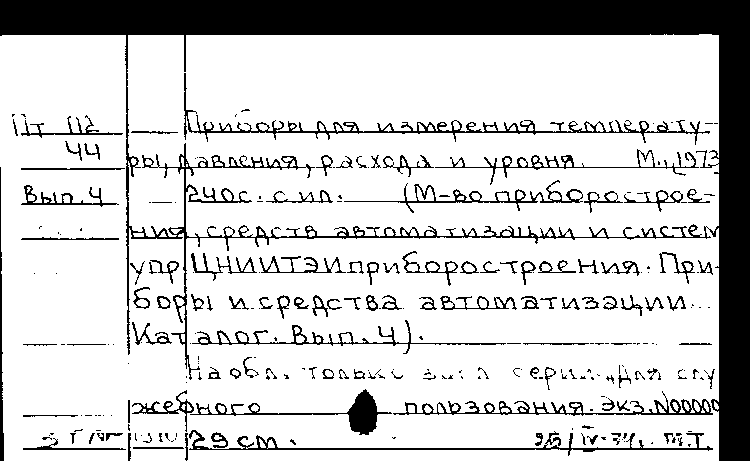 Пт П2 Приборы для измерения температу-
44 ры, давления, расхода и уровня. М., 1973
Вып. 4 240с. с ил. (М-во приборострое-
ния, средств автоматизации и систем
упр. ЦНИИТЭИприборостроения. При-
боры и средства автоматизации...
Каталог. Вып. 4).
На обл. только серии. "Для слу
жебного пользования. Экз. N00000
29 см.